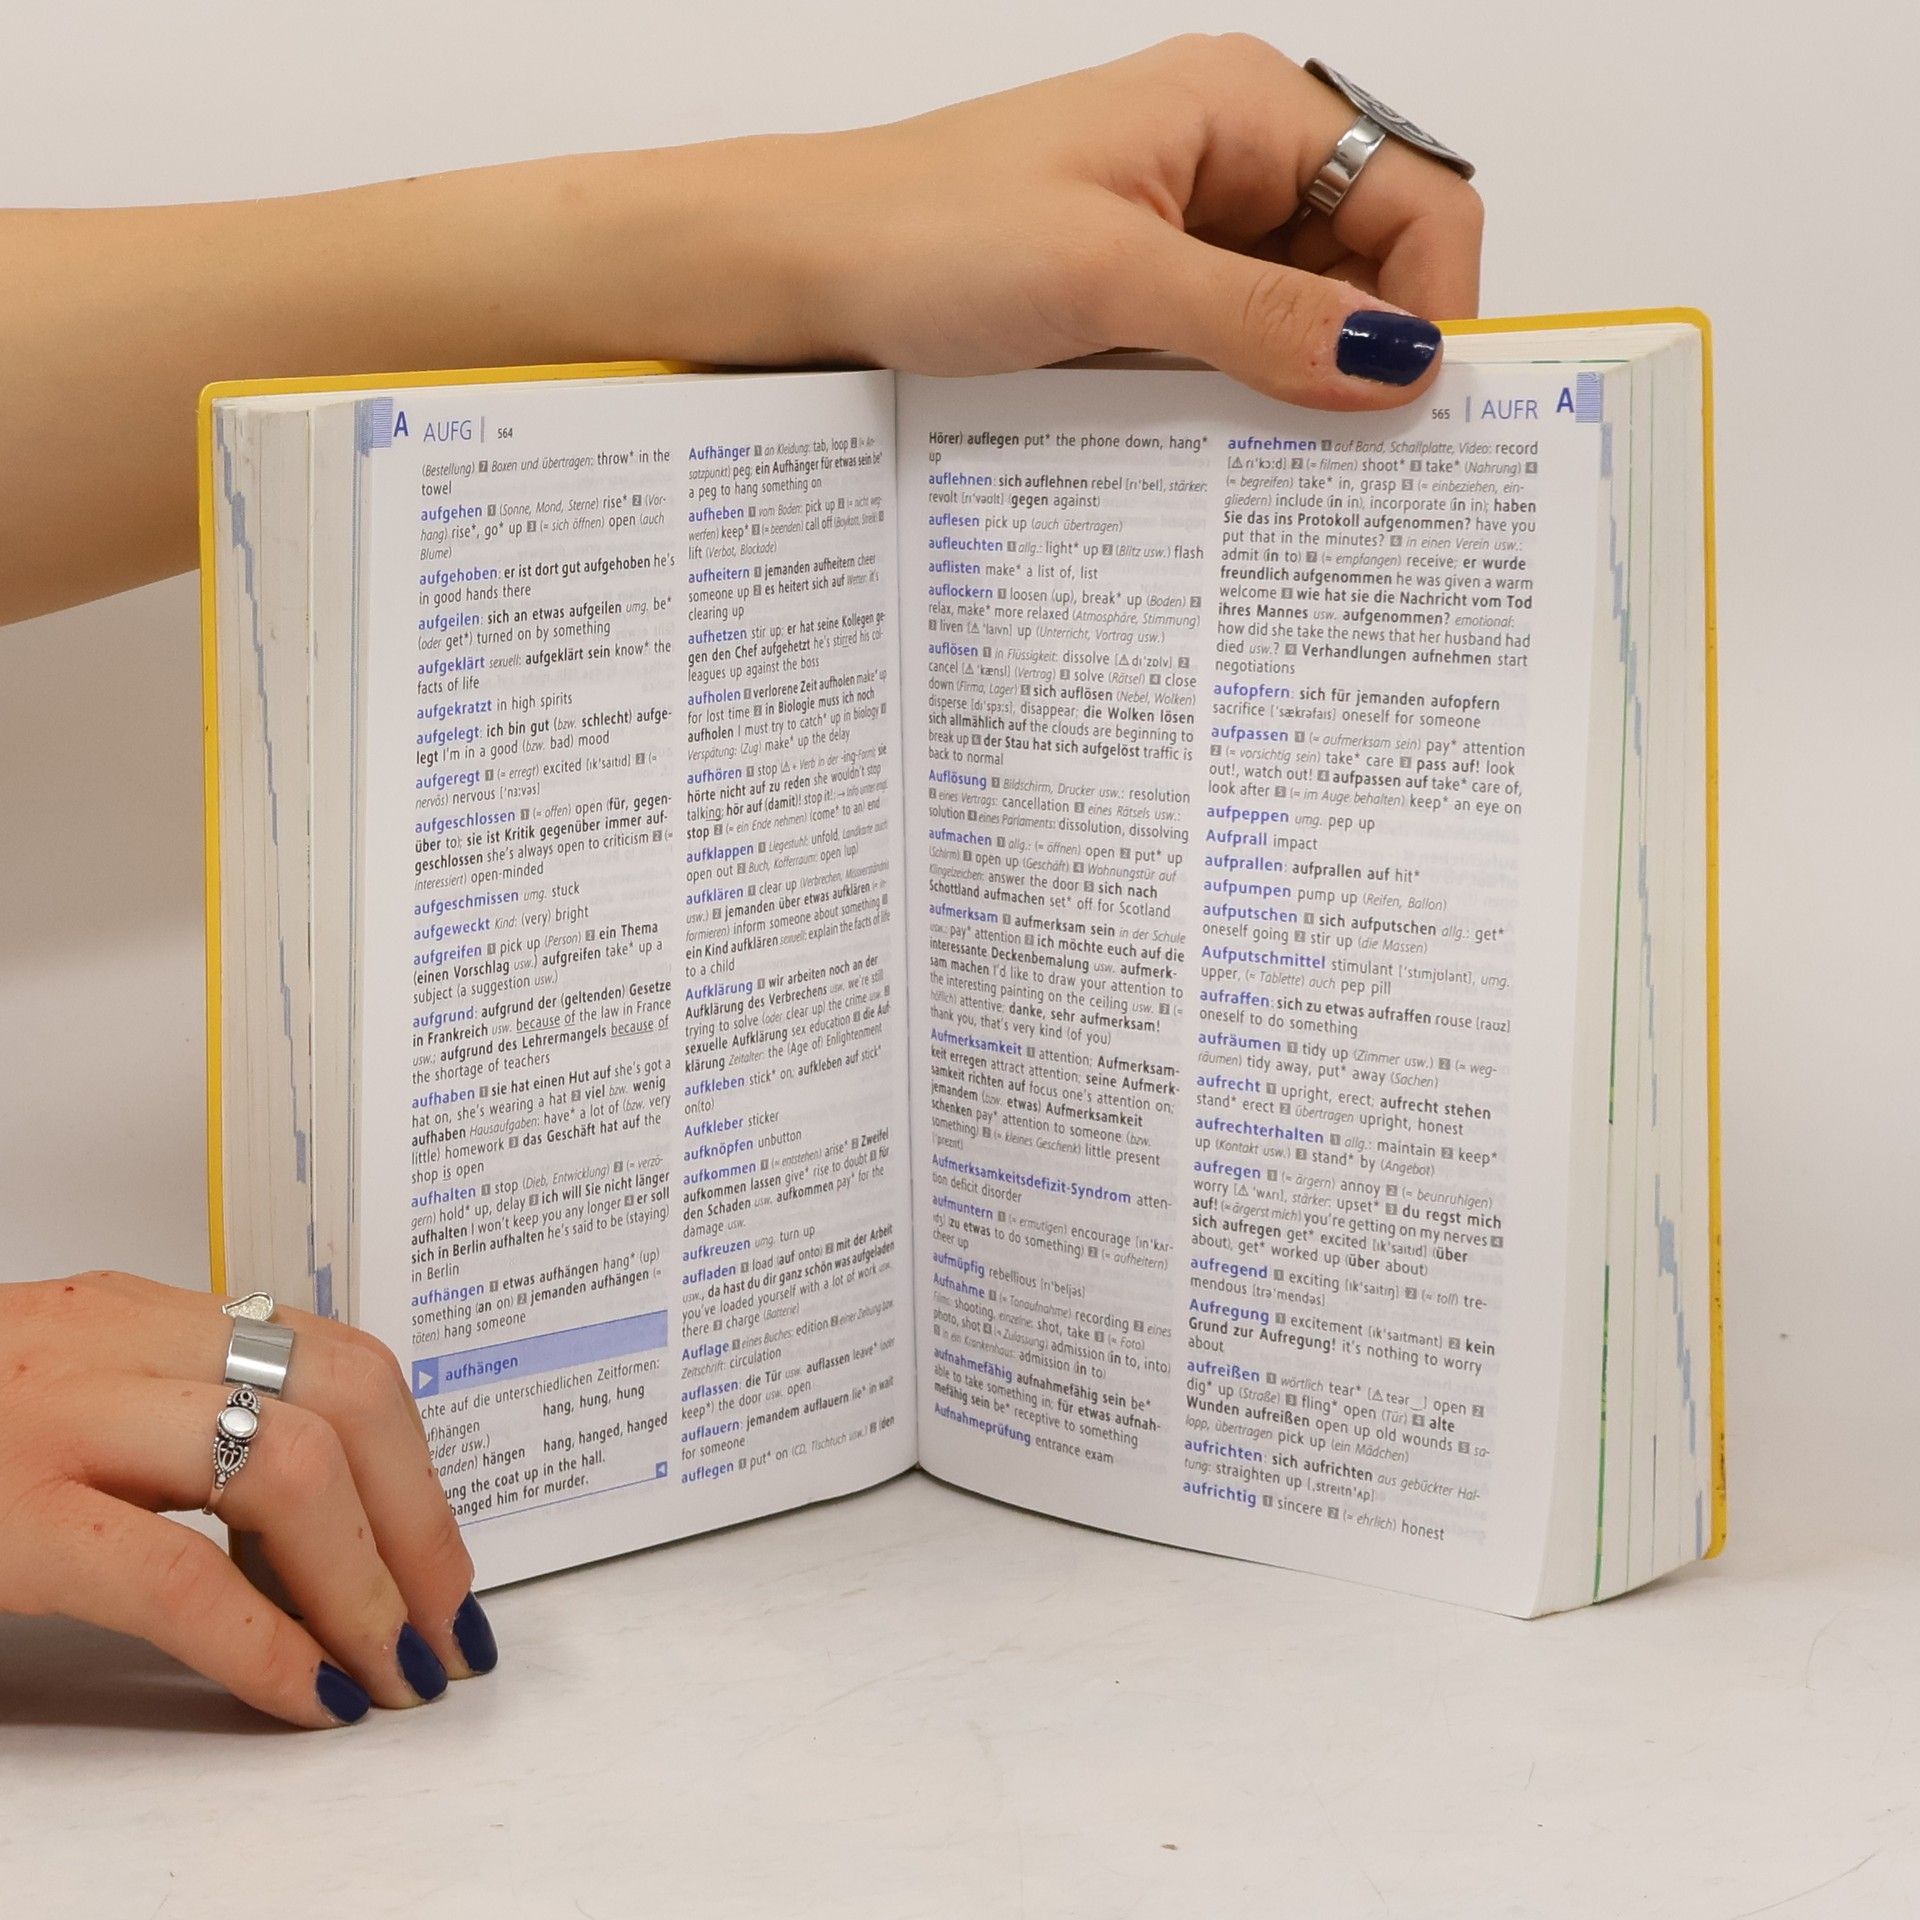 A AUFG | 564
(Bestellung) 7 Boxen und übertragen: throw* in the
towel
aufgehen 1 (Sonne, Mond, Sterne) rise* 2 (Vor-
hang) rise*, go* up 3 (= sich öffnen) open (auch
Blume)
aufgehoben: er ist dort gut aufgehoben he's
in good hands there
aufgeilen: sich an etwas aufgeilen umg. be*
(oder get*) turned on by something
aufgeklärt sexuell: aufgeklärt sein know* the
facts of life
aufgekratzt in high spirits
aufgelegt: ich bin gut (bzw. schlecht) aufge-
legt I'm in a good (bzw. bad) mood
aufgeregt 1 (= erregt) excited [ɪk'saɪtɪd] 2 (=
nervös) nervous ['nɜːvəs]
aufgeschlossen 1 (= offen) open (für, gegen-
über to); sie ist Kritik gegenüber immer auf-
geschlossen she's always open to criticism 2 (=
interessiert) open-minded
aufgeschmissen umg. stuck
aufgeweckt Kind: (very) bright
aufgreifen 1 pick up (Person) 2 ein Thema
(einen Vorschlag usw.) aufgreifen take* up a
subject (a suggestion usw.)
aufgrund: aufgrund der (geltenden) Gesetze
in Frankreich usw. because of the law in France
usw.; aufgrund des Lehrermangels because of
the shortage of teachers
aufhaben 1 sie hat einen Hut auf she's got a
hat on, she's wearing a hat 2 viel bzw. wenig
aufhaben Hausaufgaben: have* a lot of (bzw. very
little) homework 3 das Geschäft hat auf the
shop is open
aufhalten 1 stop (Dieb, Entwicklung) 2 (= verzö-
gern) hold* up, delay 3 ich will Sie nicht länger
aufhalten I won't keep you any longer 4 er soll
sich in Berlin aufhalten he's said to be (staying)
in Berlin
aufhängen 1 etwas aufhängen hang* (up)
something (an on) 2 jemanden aufhängen (=
töten) hang someone
aufhängen
chte auf die unterschiedlichen Zeitformen:
hängen hang, hung, hung
eider usw.)
anden) hängen hang, hanged, hanged
ung the coat up in the hall.
hanged him for murder.
Aufhänger 1 an Kleidung: tab, loop 2 (= An-
satzpunkt) peg; ein Aufhänger für etwas sein be*
a peg to hang something on
aufheben 1 vom Boden: pick up 2 (= nicht weg-
werfen) keep* 3 (= beenden) call off (Boykott, Streik) 4
lift (Verbot, Blockade)
aufheitern 1 jemanden aufheitern cheer
someone up 2 es heitert sich auf Wetter: it's
clearing up
aufhetzen stir up; er hat seine Kollegen ge-
gen den Chef aufgehetzt he's stirred his col-
leagues up against the boss
aufholen 1 verlorene Zeit aufholen make* up
for lost time 2 in Biologie muss ich noch
aufholen I must try to catch* up in biology 3
Verspätung: (Zug) make* up the delay
aufhören 1 stop (⚠ + Verb in der -ing-Form); sie
hörte nicht auf zu reden she wouldn't stop
talking; hör auf (damit)! stop it!; → Info unter engl.
stop 2 (= ein Ende nehmen) (come* to an) end
aufklappen 1 Liegestuhl: unfold, Landkarte auch
open out 2 Buch, Kofferraum: open (up)
aufklären 1 clear up (Verbrechen, Missverständnis
usw.) 2 jemanden über etwas aufklären (= in-
formieren) inform someone about something 3
ein Kind aufklären sexuell: explain the facts of life
to a child
Aufklärung 1 wir arbeiten noch an der
Aufklärung des Verbrechens usw. we're still
trying to solve (oder clear up) the crime usw. 2
sexuelle Aufklärung sex education 3 die Auf-
klärung Zeitalter: the (Age of) Enlightenment
aufkleben stick* on; aufkleben auf stick*
on(to)
Aufkleber sticker
aufknöpfen unbutton
aufkommen 1 (= entstehen) arise* 2 Zweifel
aufkommen lassen give* rise to doubt 3 für
den Schaden usw. aufkommen pay* for the
damage usw.
aufkreuzen umg. turn up
aufladen 1 load (auf onto) 2 mit der Arbeit
usw., da hast du dir ganz schön was aufgeladen
you've loaded yourself with a lot of work usw.
there 3 charge (Batterie)
Auflage 1 eines Buches: edition 2 einer Zeitung bzw.
Zeitschrift: circulation
auflassen: die Tür usw. auflassen leave* (oder
keep*) the door usw. open
auflauern: jemandem auflauern lie* in wait
for someone
auflegen 1 put* on (CD, Tischtuch usw.) 2 (den
565 | AUFR A
Hörer) auflegen put* the phone down, hang*
up
auflehnen: sich auflehnen rebel [rɪ'bel], stärker:
revolt [rɪ'vəʊlt] (gegen against)
auflesen pick up (auch übertragen)
aufleuchten 1 allg.: light* up 2 (Blitz usw.) flash
auflisten make* a list of, list
auflockern 1 loosen (up), break* up (Boden) 2
relax, make* more relaxed (Atmosphäre, Stimmung)
3 liven [⚠ 'laɪvn] up (Unterricht, Vortrag usw.)
auflösen 1 in Flüssigkeit: dissolve [⚠ dɪ'zɒlv] 2
cancel [⚠ 'kænsl] (Vertrag) 3 solve (Rätsel) 4 close
down (Firma, Lager) 5 sich auflösen (Nebel, Wolken)
disperse [dɪ'spɜːs], disappear; die Wolken lösen
sich allmählich auf the clouds are beginning to
break up 6 der Stau hat sich aufgelöst traffic is
back to normal
Auflösung 1 Bildschirm, Drucker usw.: resolution
2 eines Vertrags: cancellation 3 eines Rätsels usw.:
solution 4 eines Parlaments: dissolution, dissolving
aufmachen 1 allg.: (= öffnen) open 2 put* up
(Schirm) 3 open up (Geschäft) 4 Wohnungstür auf
Klingelzeichen: answer the door 5 sich nach
Schottland aufmachen set* off for Scotland
aufmerksam 1 aufmerksam sein in der Schule
usw.: pay* attention 2 ich möchte euch auf die
interessante Deckenbemalung usw. aufmerk-
sam machen I'd like to draw your attention to
the interesting painting on the ceiling usw. 3 (=
höflich) attentive; danke, sehr aufmerksam!
thank you, that's very kind (of you)
Aufmerksamkeit 1 attention; Aufmerksam-
keit erregen attract attention; seine Aufmerk-
samkeit richten auf focus one's attention on;
jemandem (bzw. etwas) Aufmerksamkeit
schenken pay* attention to someone (bzw.
something) 2 (= kleines Geschenk) little present
['preznt]
Aufmerksamkeitsdefizit-Syndrom atten-
tion deficit disorder
aufmuntern 1 (= ermutigen) encourage [ɪn'kʌr-
ɪdʒ] (zu etwas to do something) 2 (= aufheitern)
cheer up
aufmüpfig rebellious [rɪ'beljəs]
Aufnahme 1 (= Tonaufnahme) recording 2 eines
Films: shooting, einzelne: shot, take 3 (= Foto)
photo, shot 4 (= Zulassung) admission (in to, into)
5 in ein Krankenhaus: admission (in to)
aufnahmefähig aufnahmefähig sein be*
able to take something in; für etwas aufnah-
mefähig sein be* receptive to something
Aufnahmeprüfung entrance exam
aufnehmen 1 auf Band, Schallplatte, Video: record
[⚠ rɪ'kɔːd] 2 (= filmen) shoot* 3 take* (Nahrung) 4
(= begreifen) take* in, grasp 5 (= einbeziehen, ein-
gliedern) include (in in), incorporate (in in); haben
Sie das ins Protokoll aufgenommen? have you
put that in the minutes? 6 in einen Verein usw.:
admit (in to) 7 (= empfangen) receive; er wurde
freundlich aufgenommen he was given a warm
welcome 8 wie hat sie die Nachricht vom Tod
ihres Mannes usw. aufgenommen? emotional:
how did she take the news that her husband had
died usw.? 9 Verhandlungen aufnehmen start
negotiations
aufopfern: sich für jemanden aufopfern
sacrifice ['sækrəfaɪs] oneself for someone
aufpassen 1 (= aufmerksam sein) pay* attention
2 (= vorsichtig sein) take* care 3 pass auf! look
out!, watch out! 4 aufpassen auf take* care of,
look after 5 (= im Auge behalten) keep* an eye on
aufpeppen umg. pep up
Aufprall impact
aufprallen: aufprallen auf hit*
aufpumpen pump up (Reifen, Ballon)
aufputschen 1 sich aufputschen allg.: get*
oneself going 2 stir up (die Massen)
Aufputschmittel stimulant ['stɪmjʊlənt], umg.
upper, (= Tablette) auch pep pill
aufraffen: sich zu etwas aufraffen rouse [raʊz]
oneself to do something
aufräumen 1 tidy up (Zimmer usw.) 2 (= weg-
räumen) tidy away, put* away (Sachen)
aufrecht 1 upright, erect; aufrecht stehen
stand* erect 2 übertragen upright, honest
aufrechterhalten 1 allg.: maintain 2 keep*
up (Kontakt usw.) 3 stand* by (Angebot)
aufregen 1 (= ärgern) annoy 2 (= beunruhigen)
worry [⚠ 'wʌrɪ], stärker: upset* 3 du regst mich
auf! (= ärgerst mich) you're getting on my nerves 4
sich aufregen get* excited [ɪk'saɪtɪd] (über
about), get* worked up (über about)
aufregend 1 exciting [ɪk'saɪtɪŋ] 2 (= toll) tre-
mendous [trə'mendəs]
Aufregung 1 excitement [ɪk'saɪtmənt] 2 kein
Grund zur Aufregung! it's nothing to worry
about
aufreißen 1 wörtlich tear* [⚠ teər_] open 2
dig* up (Straße) 3 fling* open (Tür) 4 alte
Wunden aufreißen open up old wounds 5 sa-
lopp, übertragen pick up (ein Mädchen)
aufrichten: sich aufrichten aus gebückter Hal-
tung: straighten up [ˌstreɪtn'ʌp]
aufrichtig 1 sincere 2 (= ehrlich) honest